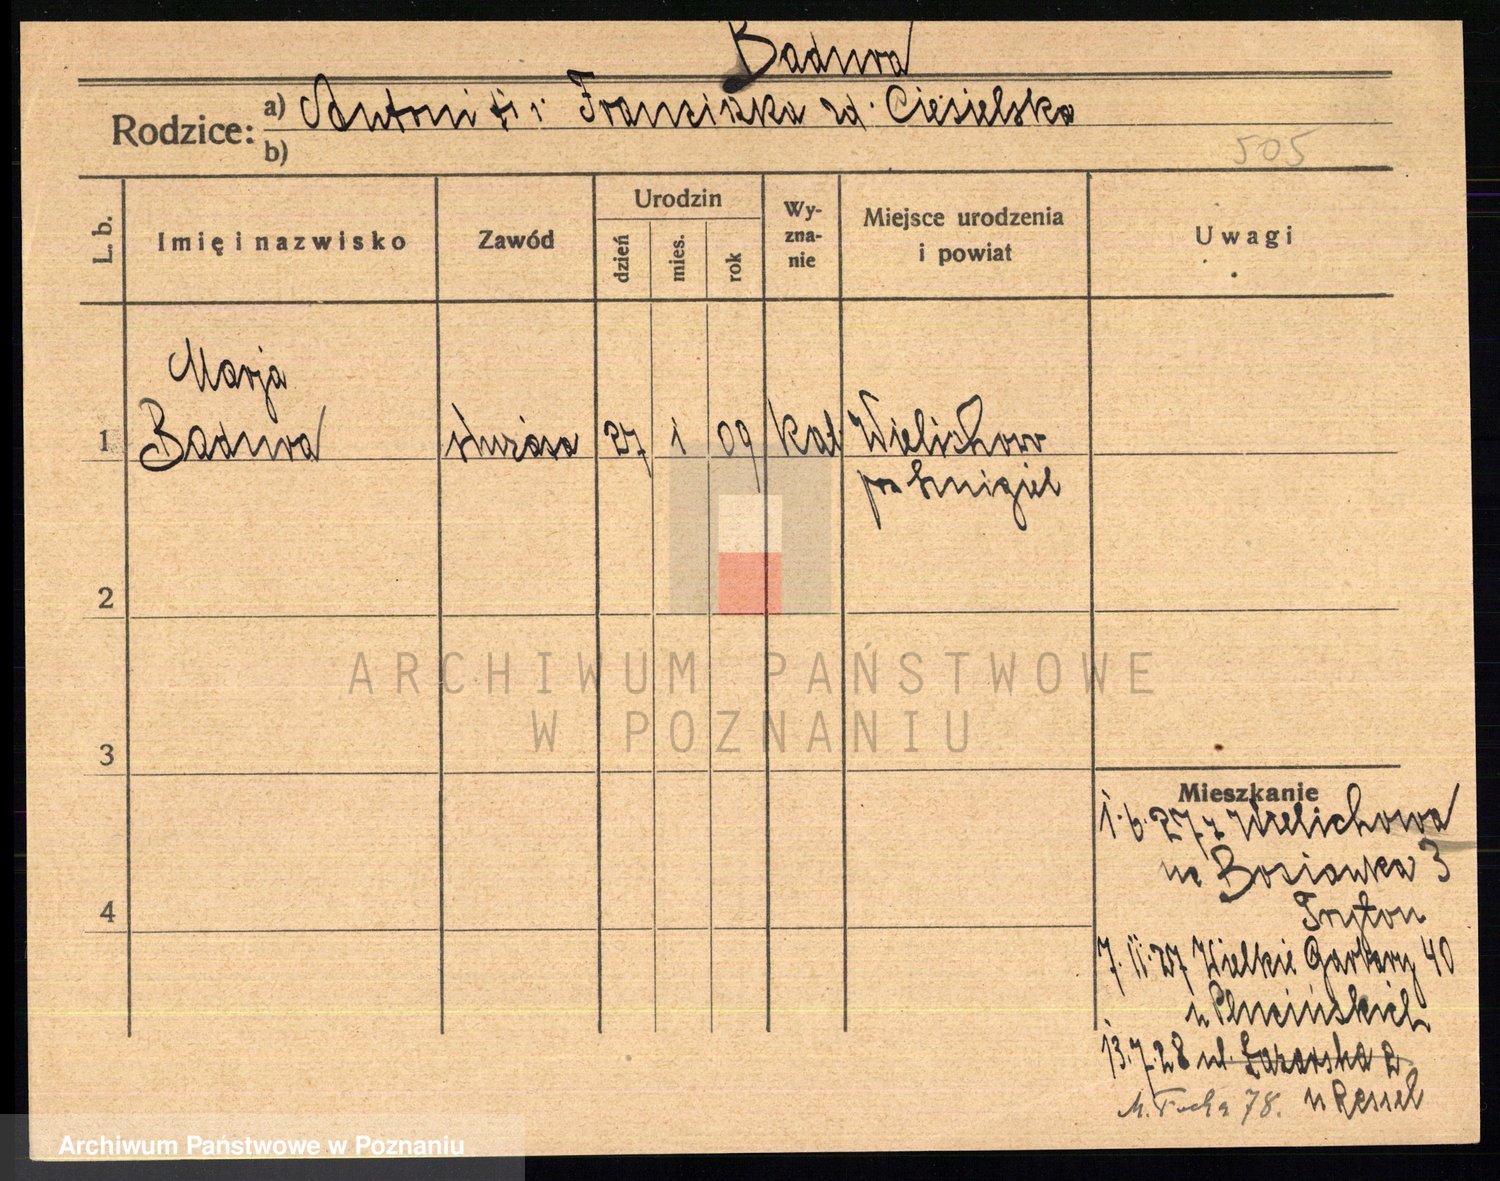 Badura
Rodzice:
a) Antoni i Franciszka zd. Ciesielska
b)
505
L. b.
Imię i nazwisko
Zawód
Urodzin
dzień
mies.
rok
Wy-
zna-
nie
Miejsce urodzenia
i powiat
Uwagi
Marja
1 Badura służąca 27 1 09 kat Wielichowo
pow Śmigiel
2
3
4
Mieszkanie
1.6.27 z Wielichowa
na 3
7.11.27 Wielkie Garbary 40
u Plucińskich
13.7.28 ul. Łazarska 2
M. Focha 78. u
ARCHIWUM PAŃSTWOWE
W POZNANIU
Archiwum Państwowe w Poznaniu